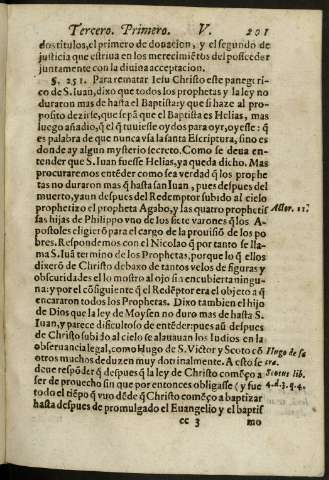 Tercero. Primero. V. 201
dos titulos, el primero de donacion, y el segundo de
justicia que estriua en los merecimiẽtos del posceder
juntamente con la diuina acceptacion.
§. 251. Para rematar Iesu Christo este panegeri-
co de S. Iuan, dixo que todos los prophetas y la ley no
duraron mas de hasta el Baptista: y que si haze al pro-
posito dezirse, que sepã que el Baptista es Helias, mas
luego añadio, q̃ el q̃ tuuiesse oydos para oyr, oyesse: q̃
es palabra de que nunca vsa la santa Escriptura, sino es
donde ay algun mysterio secreto. Como se deua en-
tender que S. Iuan fuesse Helias, ya queda dicho. Mas
procuraremos entẽder como sea verdad q̃ los prophe
tas no duraron mas q̃ hasta san Iuan, pues despues del
muerto, y aun despues del Redemptor subido al cielo
prophetizo el propheta Agabo, y las quatro prophetis
sas hijas de Philippo vno de los siete varones q̃ los A-
postoles eligierõ para el cargo de la prouisiõ de los po
bres. Respondemos con el Nicolao q̃ por tanto se lla-
ma S. Iuã termino de los Prophetas, porque lo q̃ ellos
dixerõ de Christo debaxo de tantos velos de figuras y
obscuridades el lo mostro al ojo sin encubierta ningu-
na: y por el cõsiguiente q̃ el Redẽptor era el objeto a q̃
encararon todos los Prophetas. Dixo tambien el hijo
de Dios que la ley de Moysen no duro mas de hasta S.
Iuan, y parece dificultoso de entẽder: pues aũ despues
de Christo subido al cielo se alauauan los Iudios en la
obseruancia legal, como Hugo de S. Victor y Scoto cõ
otros muchos deduzen muy dotrinalmente. A esto se
deue respõder q̃ despues q̃ la ley de Christo comẽço a
ser de prouecho sin que por entonces obligasse (y fue
todo el tiẽpo q̃ vuo dẽde q̃ Christo comẽço a baptizar
hasta despues de promulgado el Euangelio y el baptis
cc 3 mo
Actor. 11.
Hugo de sa
cra.
Scotus lib.
4. d. 3. q. 4.